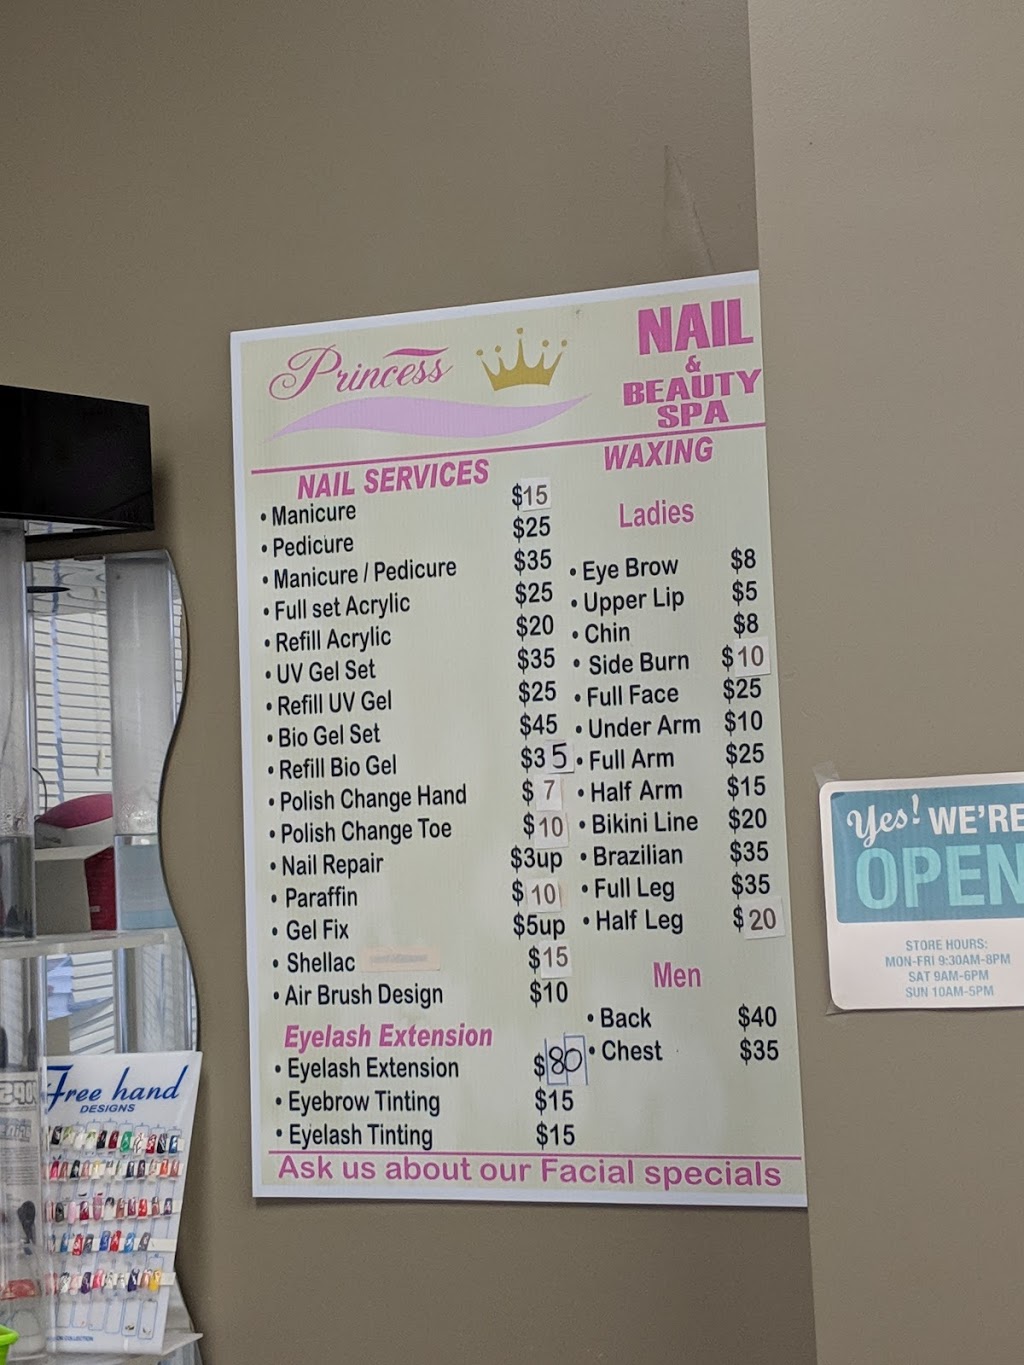 Princess
NAIL
&
BEAUTY
SPA
NAIL SERVICES
• Manicure $15
• Pedicure $25
• Manicure / Pedicure $35
• Full set Acrylic $25
• Refill Acrylic $20
• UV Gel Set $35
• Refill UV Gel $25
• Bio Gel Set $45
• Refill Bio Gel $35
• Polish Change Hand $7
• Polish Change Toe $10
• Nail Repair $3up
• Paraffin $10
• Gel Fix $5up
• Shellac $15
• Air Brush Design $10
Eyelash Extension
• Eyelash Extension $80
• Eyebrow Tinting $15
• Eyelash Tinting $15
WAXING
Ladies
• Eye Brow $8
• Upper Lip $5
• Chin $8
• Side Burn $10
• Full Face $25
• Under Arm $10
• Full Arm $25
• Half Arm $15
• Bikini Line $20
• Brazilian $35
• Full Leg $35
• Half Leg $20
Men
• Back $40
• Chest $35
Ask us about our Facial specials
Yes! WE'RE
OPEN
STORE HOURS:
MON-FRI 9:30AM-8PM
SAT 9AM-6PM
SUN 10AM-5PM
Free hand
DESIGNS
COLLECTION